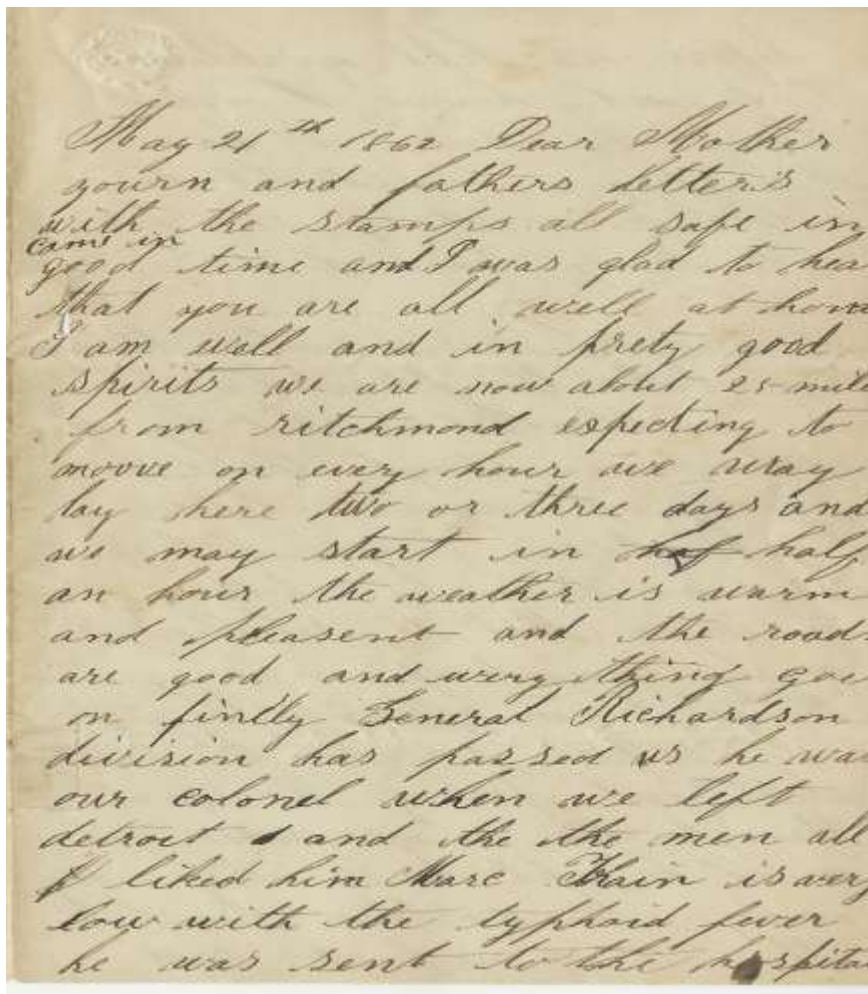 May 21st 1862 Dear Mother
yourn and fathers letters
with the stamps all safe in
came in
good time and I was glad to hea
that you are all well at hom
I am well and in prety good
spirits we are now about 25 mile
from ritchmond expecting to
moove on every hour we may
lay here two or three days and
we may start in haf half
an hour the weather is warm
and pleasent and the road
are good and every thing goe
on finlly General Richardson
division has passed us he was
our colonel when we left
detroit and the the men all
liked him Marc is very
low with the typhoid fever
he was sent to the hospita